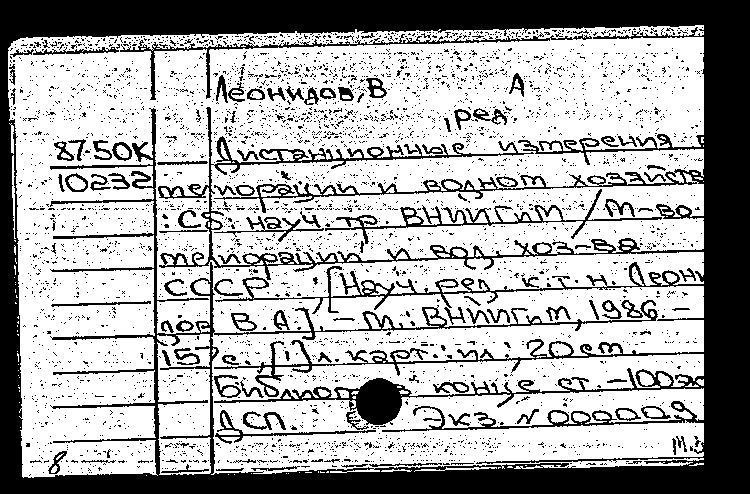 Леонидов, В А
, ред.
87-50К Дистанционные измерения в
10232 мелиорации и водном хозяйств
: Сб. науч. тр. ВНИИГиМ / М-во
мелиорации и вод. хоз-ва
СССР... ; [Науч. ред. к.т.н. Леони
дов В.А.]. – М.: ВНИИГиМ, 1986. –
157 с., [1] л. карт. : ил ; 20 см.
Библиогр в конце ст. – 100эк
ДСП. Экз. N 000009
8